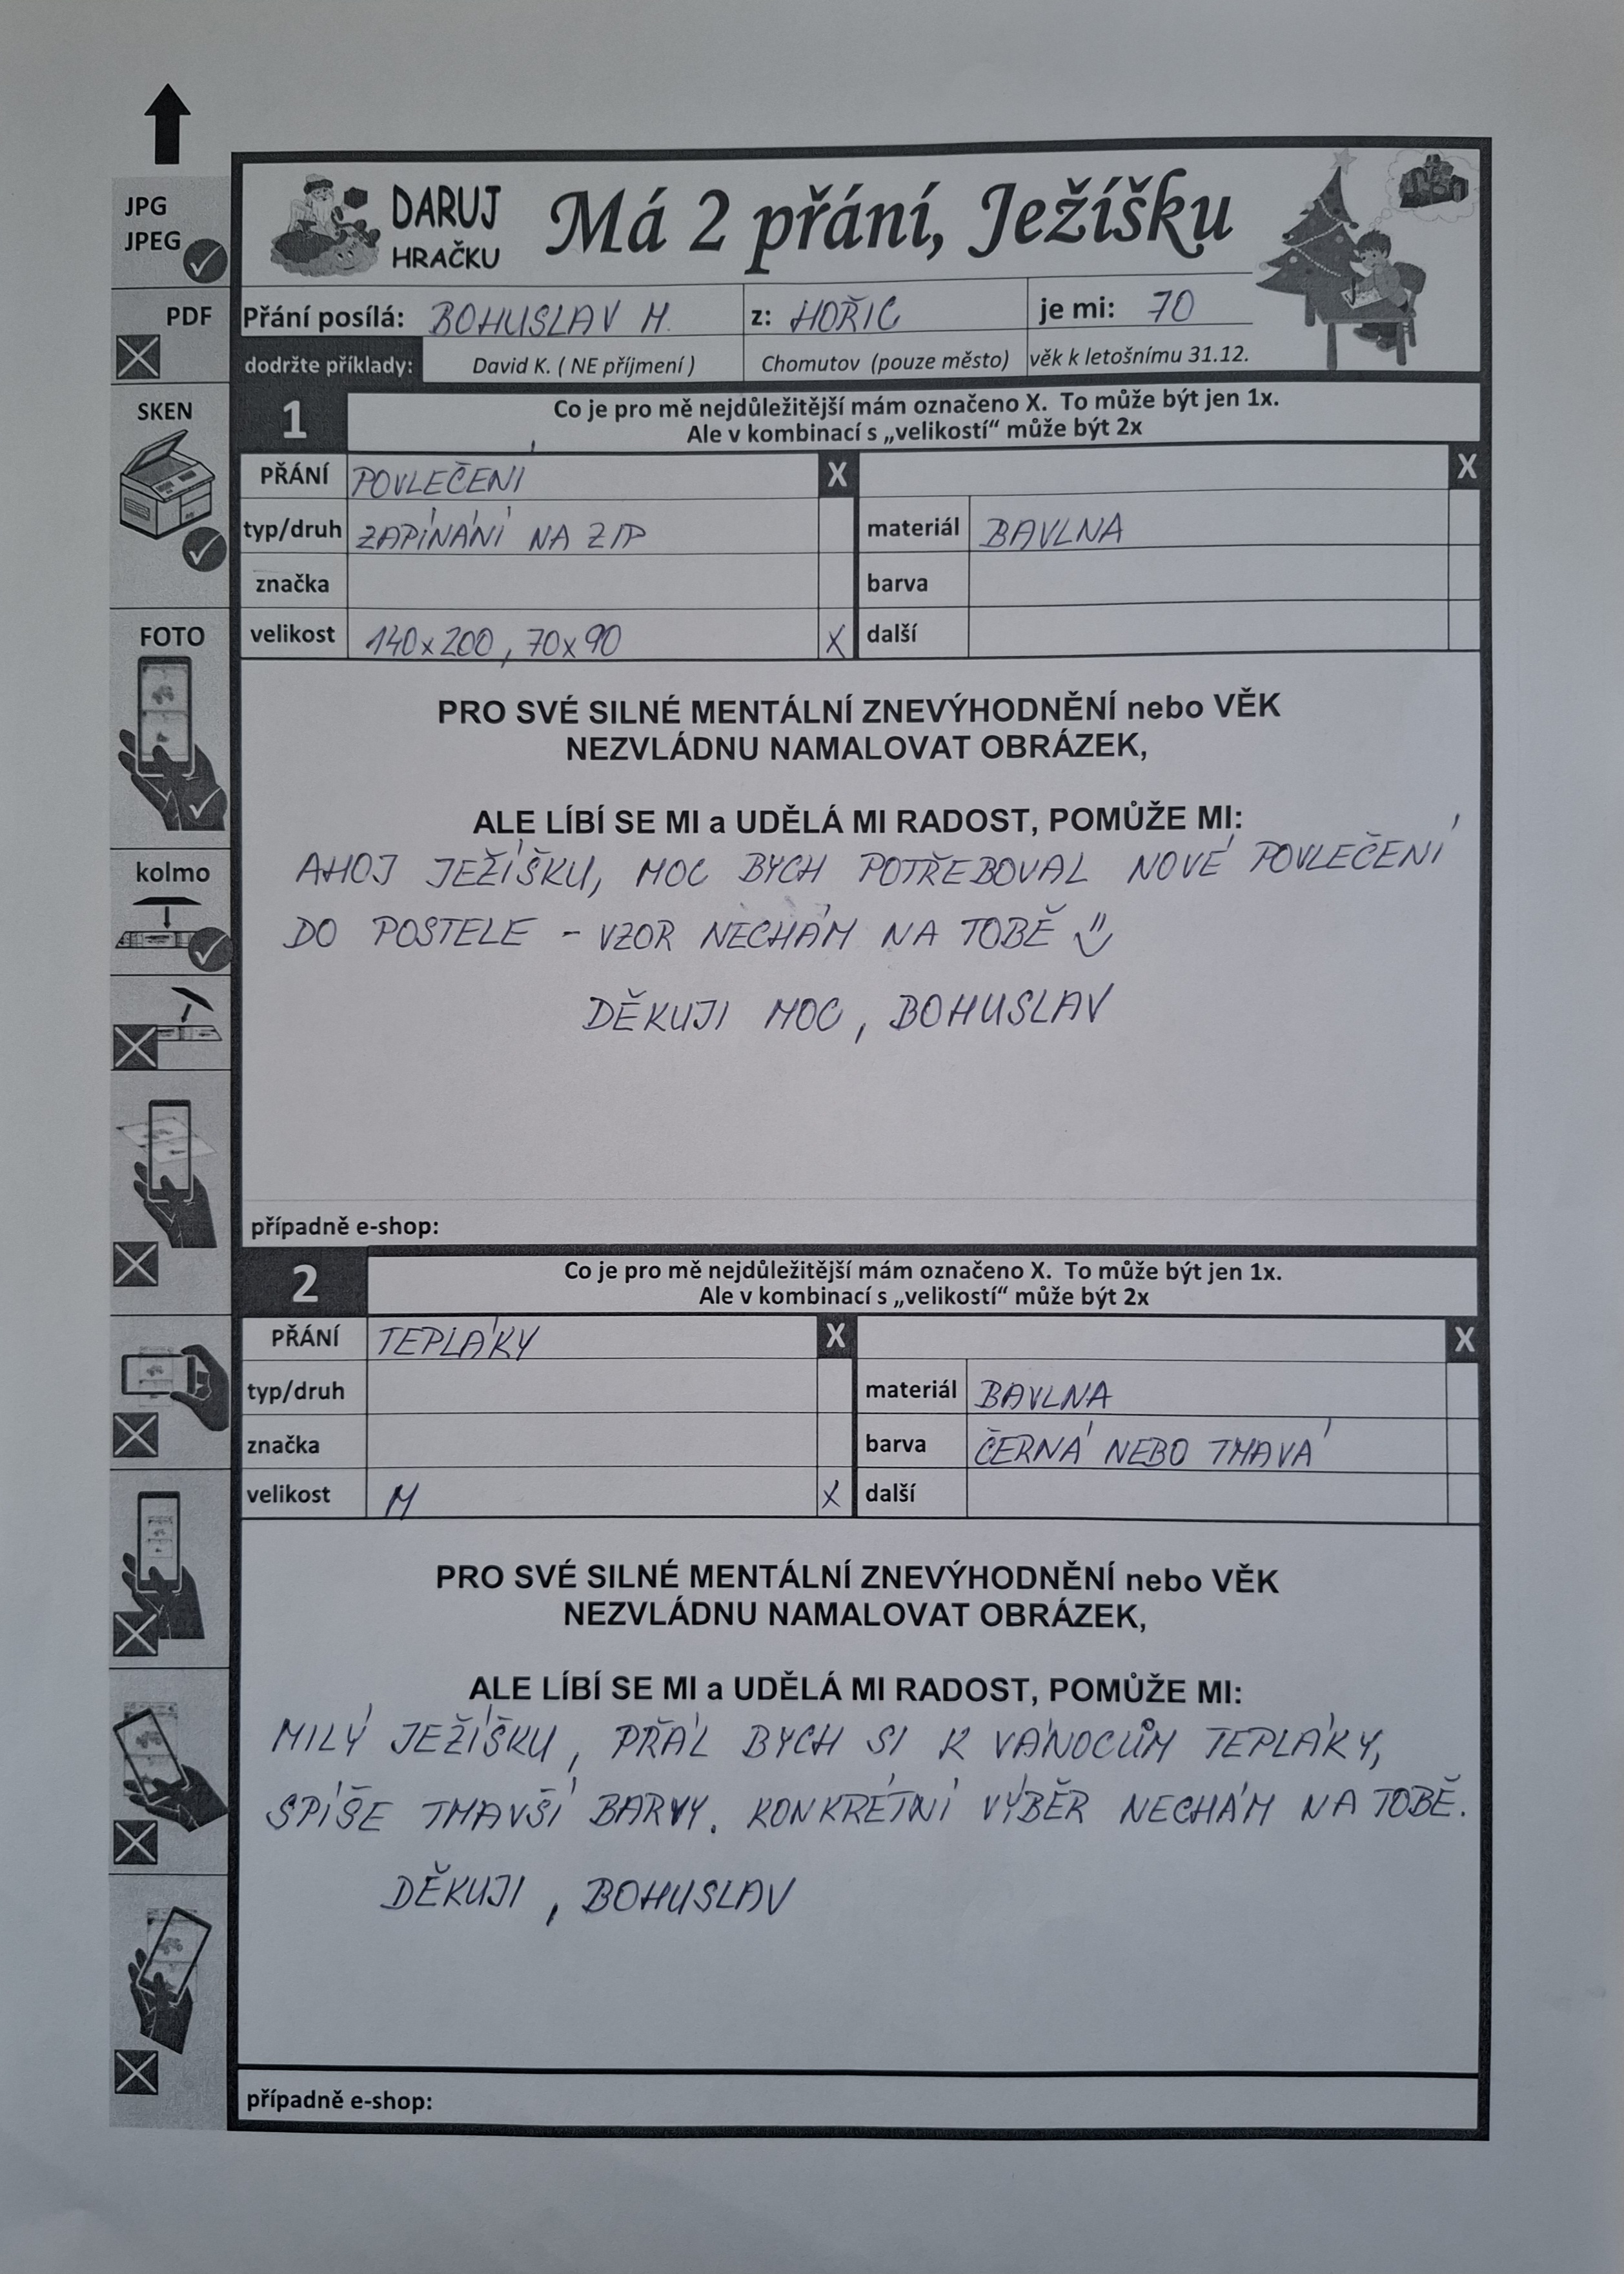 JPG
JPEG
PDF
SKEN
FOTO
kolmo
DARUJ
HRAČKU
Má 2 přání, Ježíšku
Přání posílá: BOHUSLAV M. z: HOŘIC je mi: 70
dodržte příklady: David K. ( NE příjmení ) Chomutov (pouze město) věk k letošnímu 31.12.
1 Co je pro mě nejdůležitější mám označeno X. To může být jen 1x.
Ale v kombinací s „velikostí“ může být 2x
PŘÁNÍ POVLEČENÍ X X
typ/druh ZAPÍNÁNÍ NA ZIP materiál BAVLNA
značka barva
velikost 140x200, 70x90 X další
PRO SVÉ SILNÉ MENTÁLNÍ ZNEVÝHODNĚNÍ nebo VĚK
NEZVLÁDNU NAMALOVAT OBRÁZEK,
ALE LÍBÍ SE MI a UDĚLÁ MI RADOST, POMŮŽE MI:
AHOJ JEŽÍŠKU, MOC BYCH POTŘEBOVAL NOVÉ POVLEČENÍ
DO POSTELE - VZOR NECHÁM NA TOBĚ
DĚKUJI MOC, BOHUSLAV
případně e-shop:
2 Co je pro mě nejdůležitější mám označeno X. To může být jen 1x.
Ale v kombinací s „velikostí“ může být 2x
PŘÁNÍ TEPLÁKY X X
typ/druh materiál BAVLNA
značka barva ČERNÁ NEBO TMAVÁ
velikost M X další
PRO SVÉ SILNÉ MENTÁLNÍ ZNEVÝHODNĚNÍ nebo VĚK
NEZVLÁDNU NAMALOVAT OBRÁZEK,
ALE LÍBÍ SE MI a UDĚLÁ MI RADOST, POMŮŽE MI:
MILÝ JEŽÍŠKU, PŘÁL BYCH SI K VÁNOCŮM TEPLÁKY,
SPÍŠE TMAVŠÍ BARVY. KONKRÉTNÍ VÝBĚR NECHÁM NA TOBĚ.
DĚKUJI, BOHUSLAV
případně e-shop: